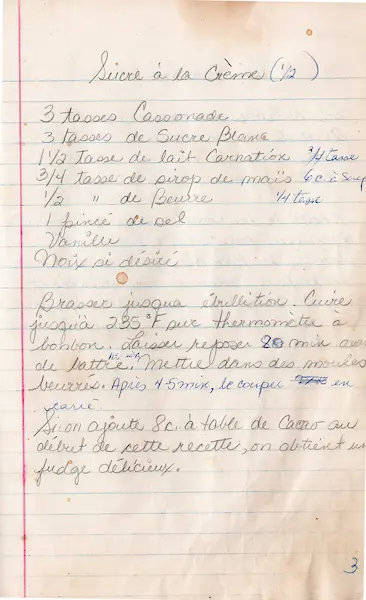 Sucre à la Crème (1/2)
3 tasses Cassonade
3 tasses de Sucre Blanc
1 1/2 tasse de lait Carnation 3/4 tasse
3/4 tasse de sirop de maïs 6 c. à Soup
1/2 " de Beurre 1/4 tasse
1 pincé de sel
Vanille
Noix si désiré
Brasser jusqua ébullition. Cuire
jusqu'à 235 °F sur thermomètre à
bonbon. Laisser reposer 20 min avant
de battre. Mettre dans des moules
beurrés. Après 45 min, le couper en
carré.
Si on ajoute 8 c. à table de Cacao au
début de cette recette, on obtient un
fudge délicieux.
3